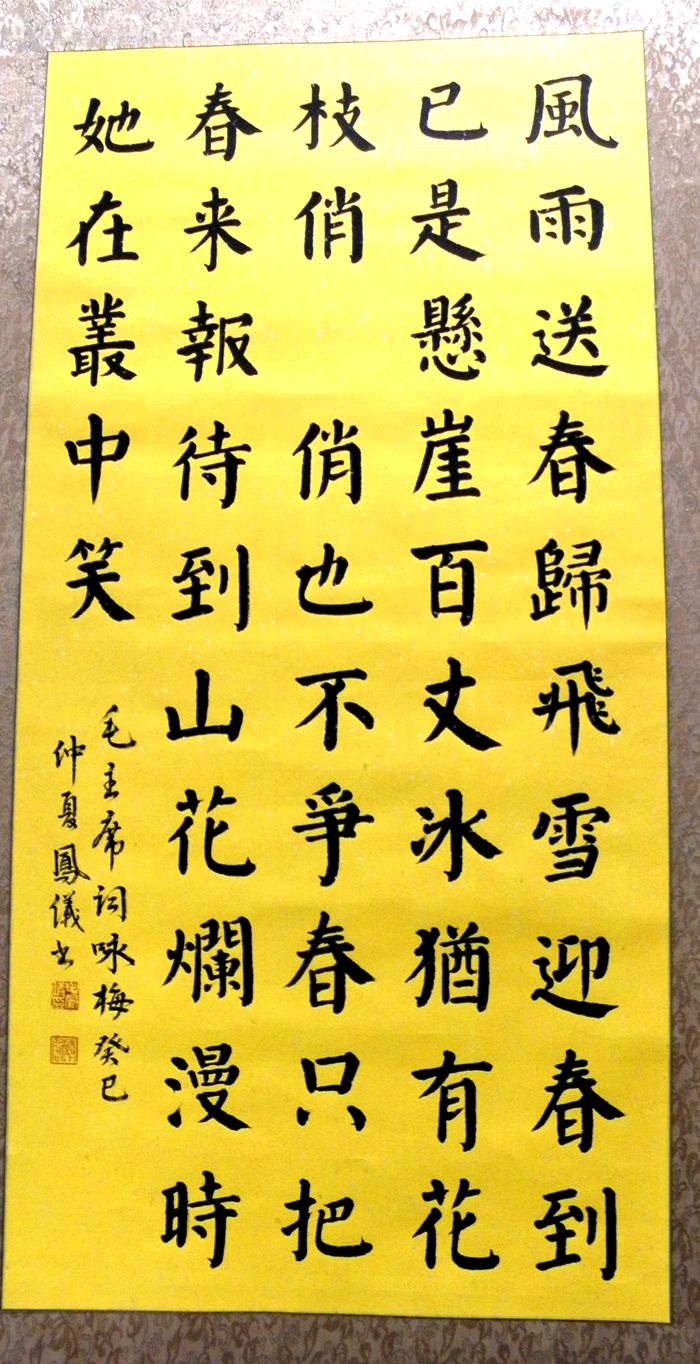 風雨送春歸飛雪迎春到
已是懸崖百丈冰猶有花
枝俏 俏也不爭春只把
春来報待到山花爛漫時
她在叢中笑
毛主席词咏梅癸巳
仲夏鳳儀书